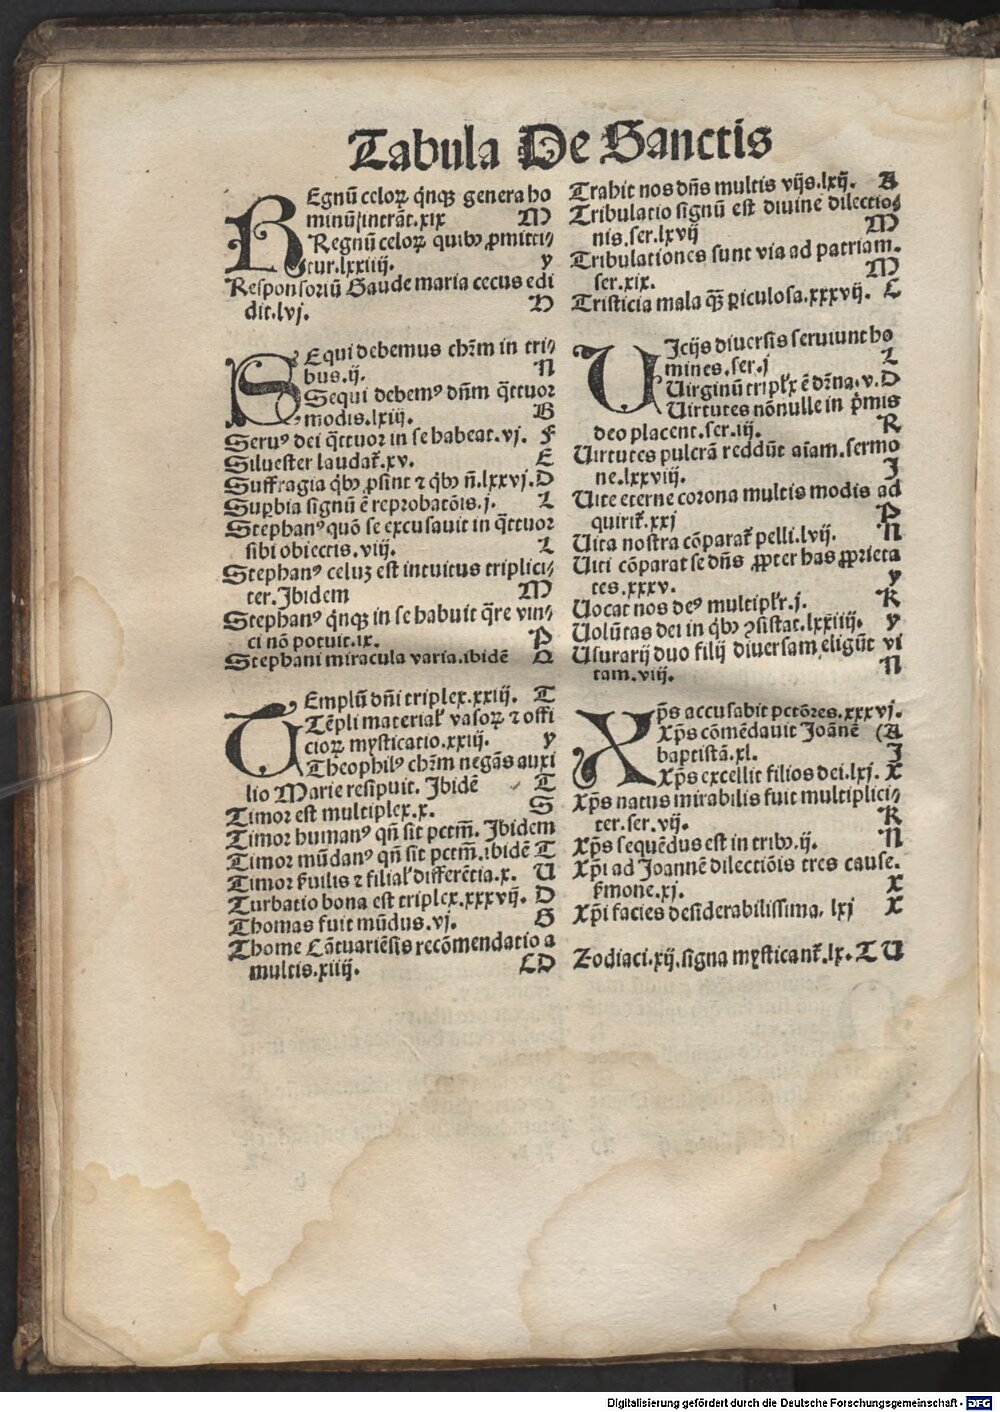 Tabula De Sanctis
REgnū celoꝝ q̇nqꝫ genera ho
minū intrāt.xix M
Regnū celoꝝ quibꝰ ꝓmitti⸗
tur.lxxiiij. y
Responsoriū Gaude maria cecus edi
dit.lvj. H
SEqui debemus chr̄m in tri⸗
bus.ij. N
Sequi debemꝰ dn̄m q̄ttuor
modis.lxiij. B
Seruꝰ dei q̄ttuor in se habeat.vj. F
Siluester laudat̄.xv. E
Suffragia q̇bꝰ ꝓsint ⁊ q̇bꝰ n̄.lxxvj.D
Suꝑbia signū ē reprobatōis.j. L
Stephanꝰ quō se excusauit in q̄ttuor
sibi obiectis.viij. L
Stephanꝰ celuꝫ est intuitus triplici⸗
ter.Ibidem M
Stephanꝰ q̇nqꝫ in se habuit q̄re vin⸗
ci nō potuit.ix. P
Stephani miracula varia.ibidē Q
TEmplū dn̄i triplex.xxiij. T
Tēpli material' vasoꝝ ⁊ offi
cioꝝ mysticatio.xxiij. y
Theophilꝰ chr̄m negās auxi
lio Marie resipuit. Ibidē T
Timor est multiplex.x. S
Timor humanꝰ qn̄ sit pctm̄. Ibidem
Timor mūdanꝰ qn̄ sit pctm̄.ibidē T
Timor ẜuilis ⁊ filial' differētia.x. U
Turbatio bona est triplex.xxxvij. D
Thomas fuit mūdus.vj. G
Thome Cātuariēsis recōmendatio a
multis.xiiij. CD
Trahit nos dn̄s multis vijs.lxij. A
Tribulatio signū est diuine dilectio⸗
nis.ser.lxvij M
Tribulationes sunt via ad patriam.
ser.xix. M
Tristicia mala qꝫ̄ ꝑiculosa.xxxvij. C
UIcijs diuersis seruiunt ho
mines.ser.j L
Uirginū tripl'x ē dr̄na.v.D
Uirtutes nōnulle in p̄mis
deo placent.ser.iij. R
Uirtutes pulcrā reddūt aīam.sermo
ne.lxxviij. J
Uite eterne corona multis modis ad
quirit̄.xxj P
Uita nostra cōparat̄ pelli.lvij. N
Uiti cōparat se dn̄s ꝓpter has ꝓprieta
tes.xxxv. y
Uocat nos deꝰ multipl'r.j. K
Uolūtas dei in q̇bꝰ ꝯsistat.lxxiiij. y
Usurarij duo filij diuersam eligūt vi
tam.viij. N
Xp̄s accusabit pctōres.xxxvj.
Xp̄s cōmēdauit Joānē (A
baptistā.xl. J
Xp̄s excellit filios dei.lxj. X
Xp̄s natus mirabilis fuit multiplici⸗
ter.ser.vij. K
Xp̄s sequēdus est in tribꝰ.ij. N
Xp̄i ad Joannē dilectiōis tres cause.
ẜmone.xj. X
Xp̄i facies desiderabilissima. lxj X
Zodiaci.xij.signa mysticant̄.lx.T U
Digitalisierung gefördert durch die Deutsche Forschungsgemeinschaft - DFG